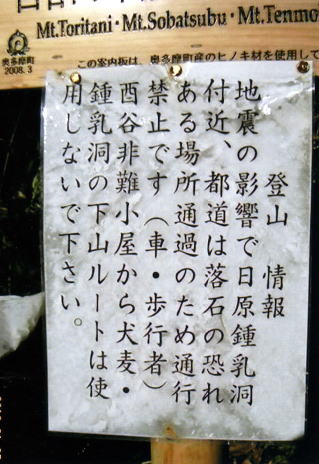 Mt.Toritani・Mt.Sobatsubu・Mt.Tenmo
奥多摩町
2008.3
この案内板は、奥多摩町産のヒノキ材を使用して
登山 情報
地震の影響で日原鍾乳洞
付近、都道は落石の恐れ
ある場所通過のため通行
禁止です(車・歩行者)
酉谷非難小屋から犬麦・
鍾乳洞の下山ルートは使
用しないで下さい。